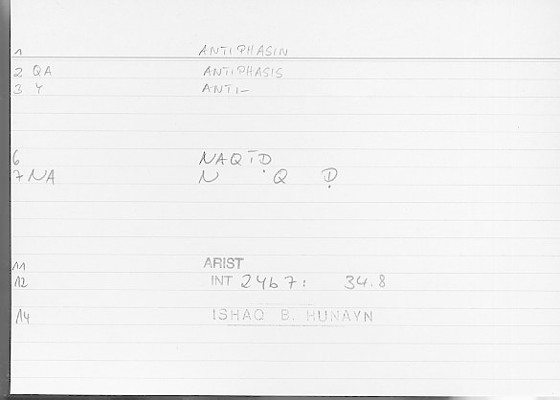 1 ANTIPHASIN
2 QA ANTIPHASIS
3 Y ANTI–
6 NAQĪḌ
7 NA N Q Ḍ
11 ARIST
12 INT 24b7: 34.8
14 ISHAQ B. HUNAYN